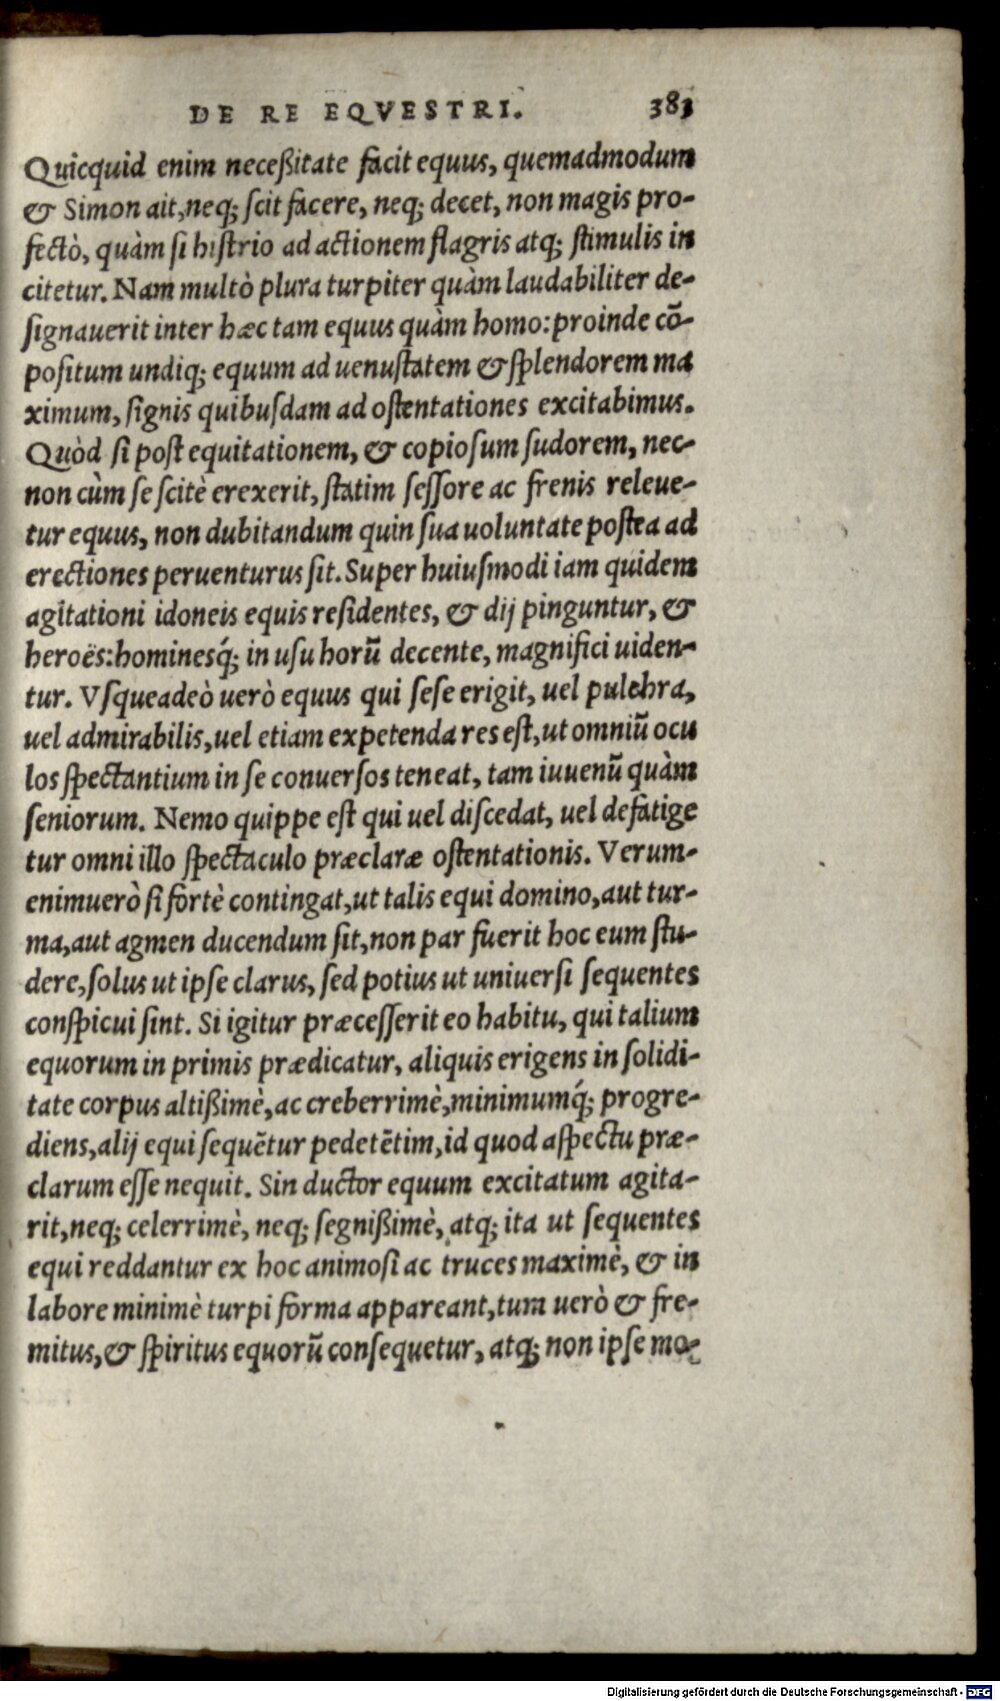 DE RE EQVESTRI. 383
Quicquid enim neceßitate facit equus, quemadmodum
& Simon ait, neq; ſcit facere, neq; decet, non magis pro-
fectò, quàm ſi hiſtrio ad actionem flagris atq; ſtimulis in
citetur. Nam multò plura turpiter quàm laudabiliter de-
ſignauerit inter hæc tam equus quàm homo: proinde cō-
poſitum undiq; equum ad uenuſtatem & ſplendorem ma
ximum, ſignis quibuſdam ad oſtentationes excitabimus.
Quòd ſi poſt equitationem, & copioſum ſudorem, nec-
non cùm ſe ſcitè erexerit, ſtatim ſeſſore ac frenis releue-
tur equus, non dubitandum quin ſua uoluntate poſtea ad
erectiones peruenturus ſit. Super huiuſmodi iam quidem
agitationi idoneis equis reſidentes, & dij pinguntur, &
heroës: hominesq́; in uſu horū decente, magnifici uiden-
tur. Vſqueadeò uerò equus qui ſeſe erigit, uel pulchra,
uel admirabilis, uel etiam expetenda res eſt, ut omniū ocu
los ſpectantium in ſe conuerſos teneat, tam iuuenū quàm
ſeniorum. Nemo quippe eſt qui uel diſcedat, uel defatige
tur omni illo ſpectaculo præclaræ oſtentationis. Verum-
enimuerò ſi fortè contingat, ut talis equi domino, aut tur-
ma, aut agmen ducendum ſit, non par fuerit hoc eum ſtu-
dere, ſolus ut ipſe clarus, ſed potius ut uniuerſi ſequentes
conſpicui ſint. Si igitur præceſſerit eo habitu, qui talium
equorum in primis prædicatur, aliquis erigens in ſolidi-
tate corpus altißimè, ac creberrimè, minimumq́; progre-
diens, alij equi ſequētur pedetētim, id quod aſpectu præ-
clarum eſſe nequit. Sin ductor equum excitatum agita-
rit, neq; celerrimè, neq; ſegnißimè, atq; ita ut ſequentes
equi reddantur ex hoc animoſi ac truces maximè, & in
labore minimè turpi forma appareant, tum uerò & fre-
mitus, & ſpiritus equorū conſequetur, atq; non ipſe mo-
Digitalisierung gefördert durch die Deutsche Forschungsgemeinschaft - DFG